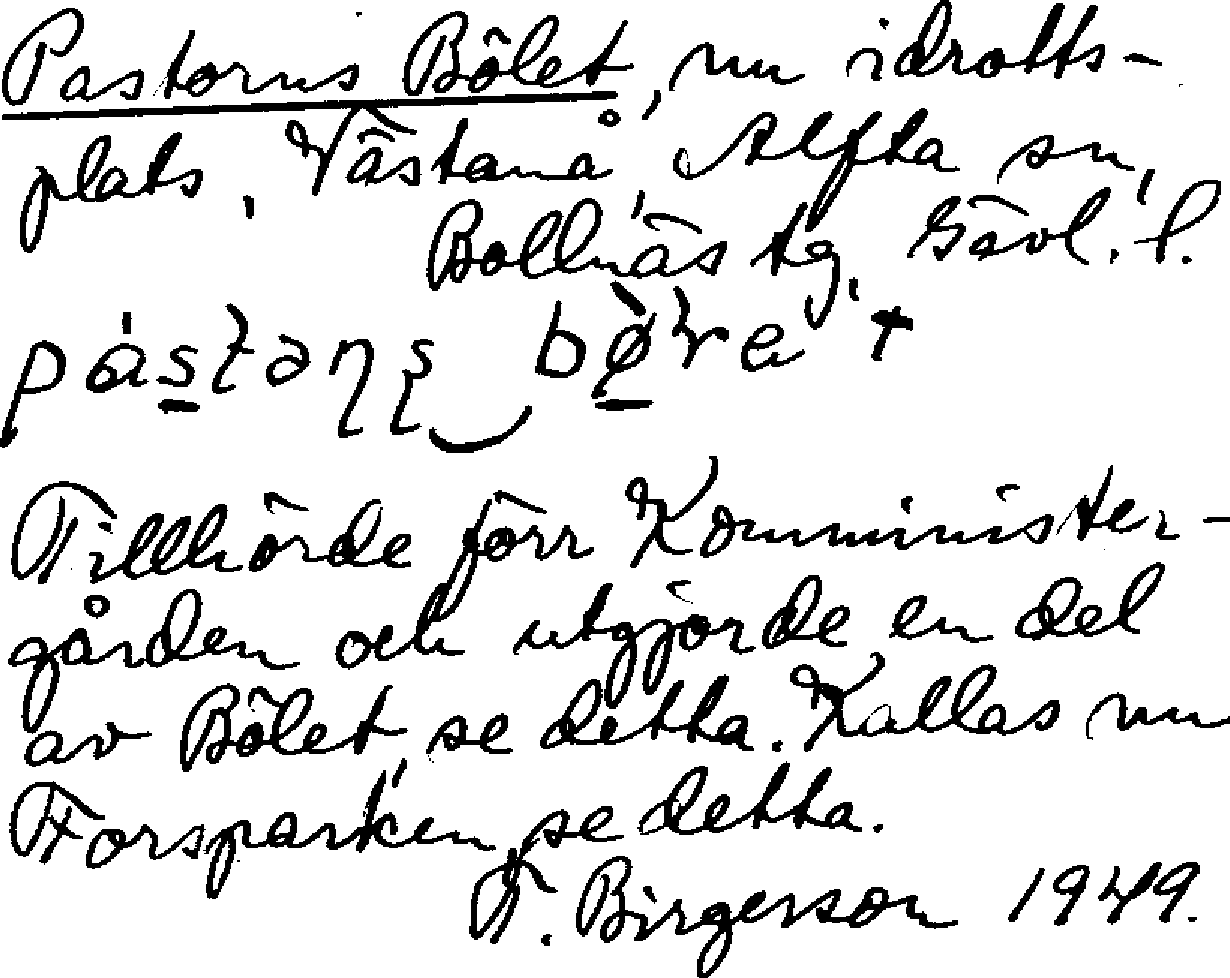 Pastorns Bölet, nu idrotts-
plats, Västanå, Alfta sn,
Bollnäs tg, Gävl. l.
Tillhörde förr Komminister-
gården och utgjorde en del
av Bölet, se detta. Kallas nu
Forsparken, se detta.
F. Birgerson 1949.